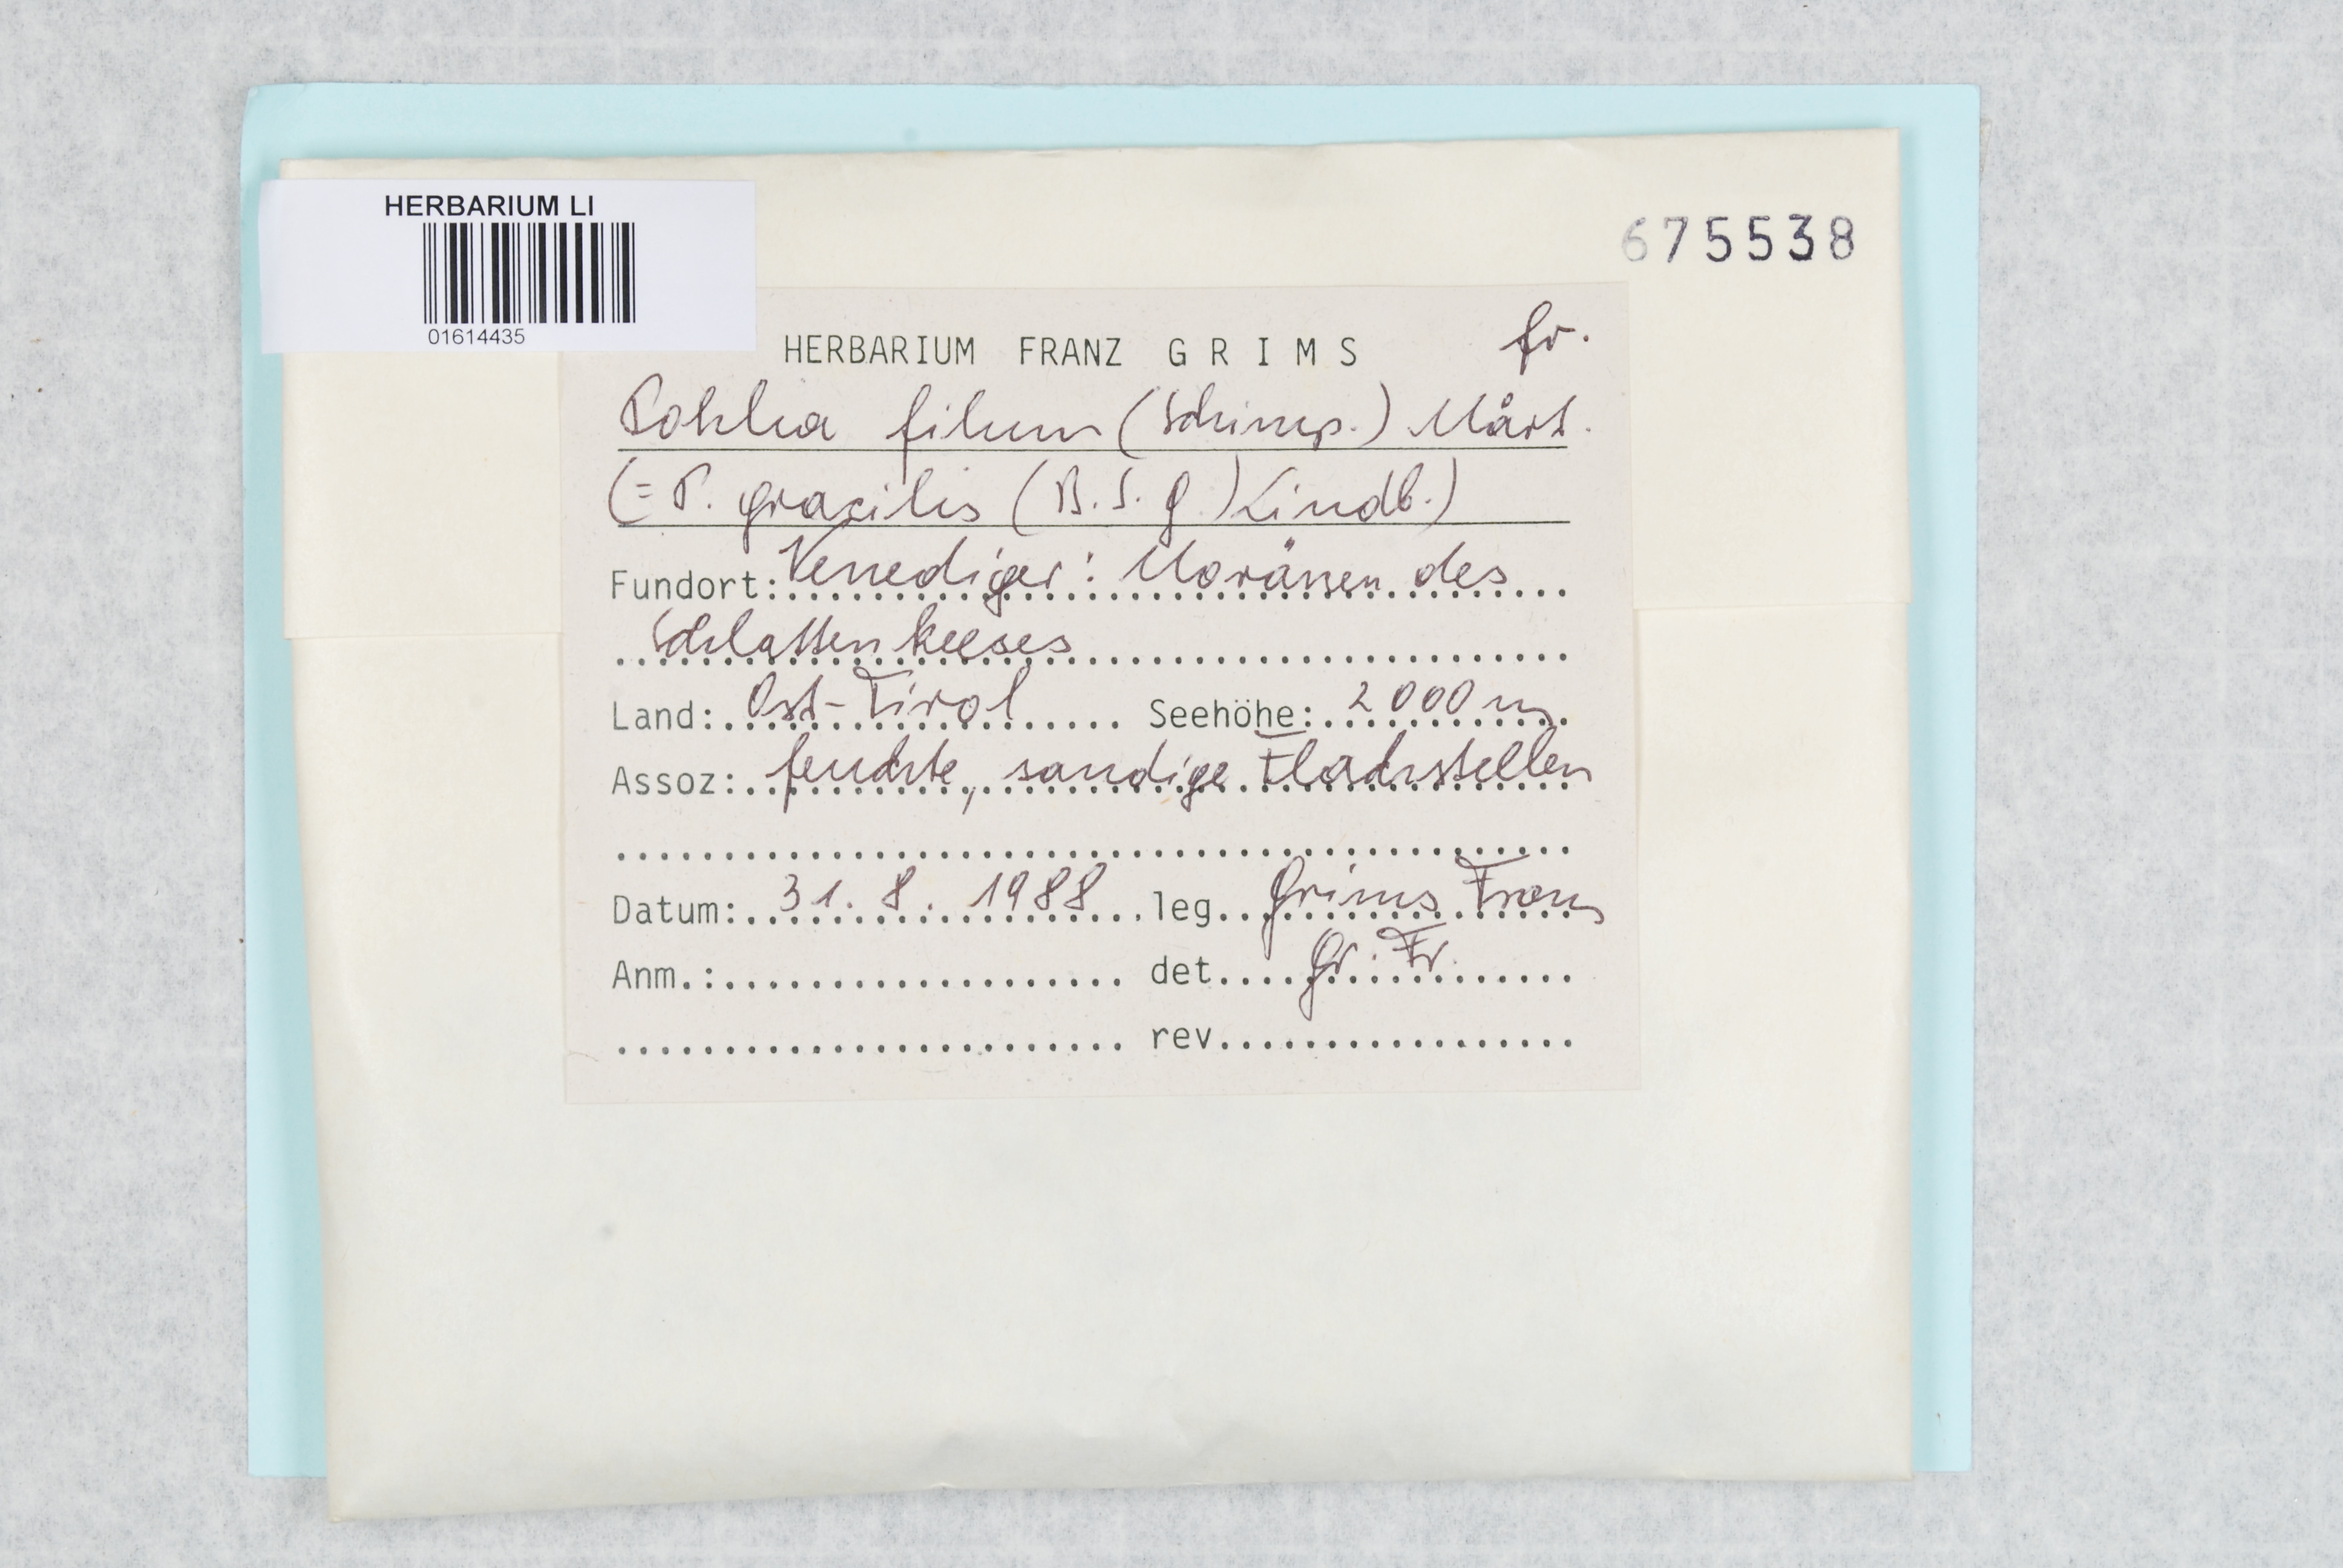 HERBARIUM LI
01614435
675538
HERBARIUM FRANZ GRIMS fr.
Pohlia filum (Schimp.) Mårt.
(= P. gracilis (B.S.G.) Lindb.)
Fundort: Venediger: Moränen des
Schlattenkeeses
Land: Ost-Tirol Seehöhe: 2000 m
Assoz: feuchte, sandige Flachstellen
Datum: 31. 8. 1988 leg. Grims Franz
Anm.: det. Gr. Fr.
rev.